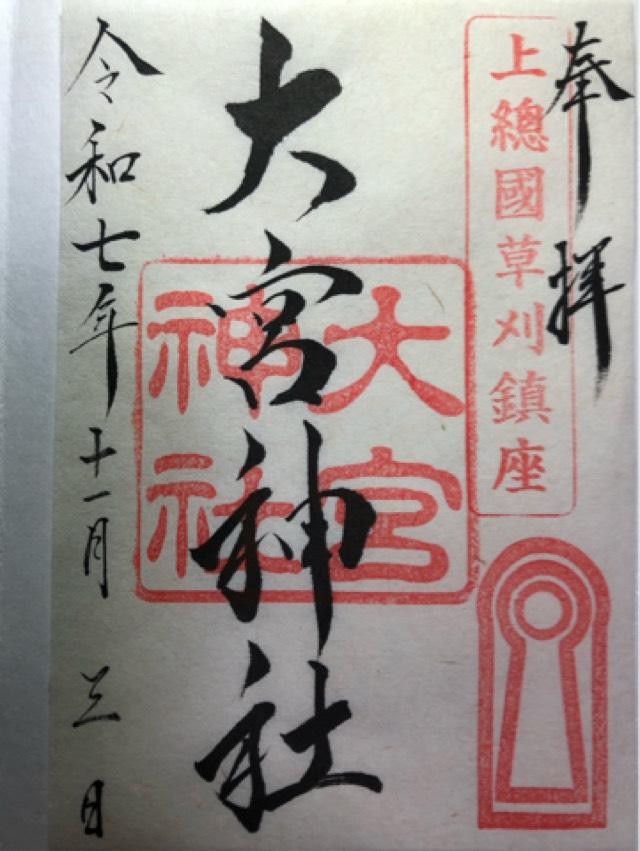 奉拝
上總國草刈鎮座
大宮神社
大宮
神社
令和七年十一月三日